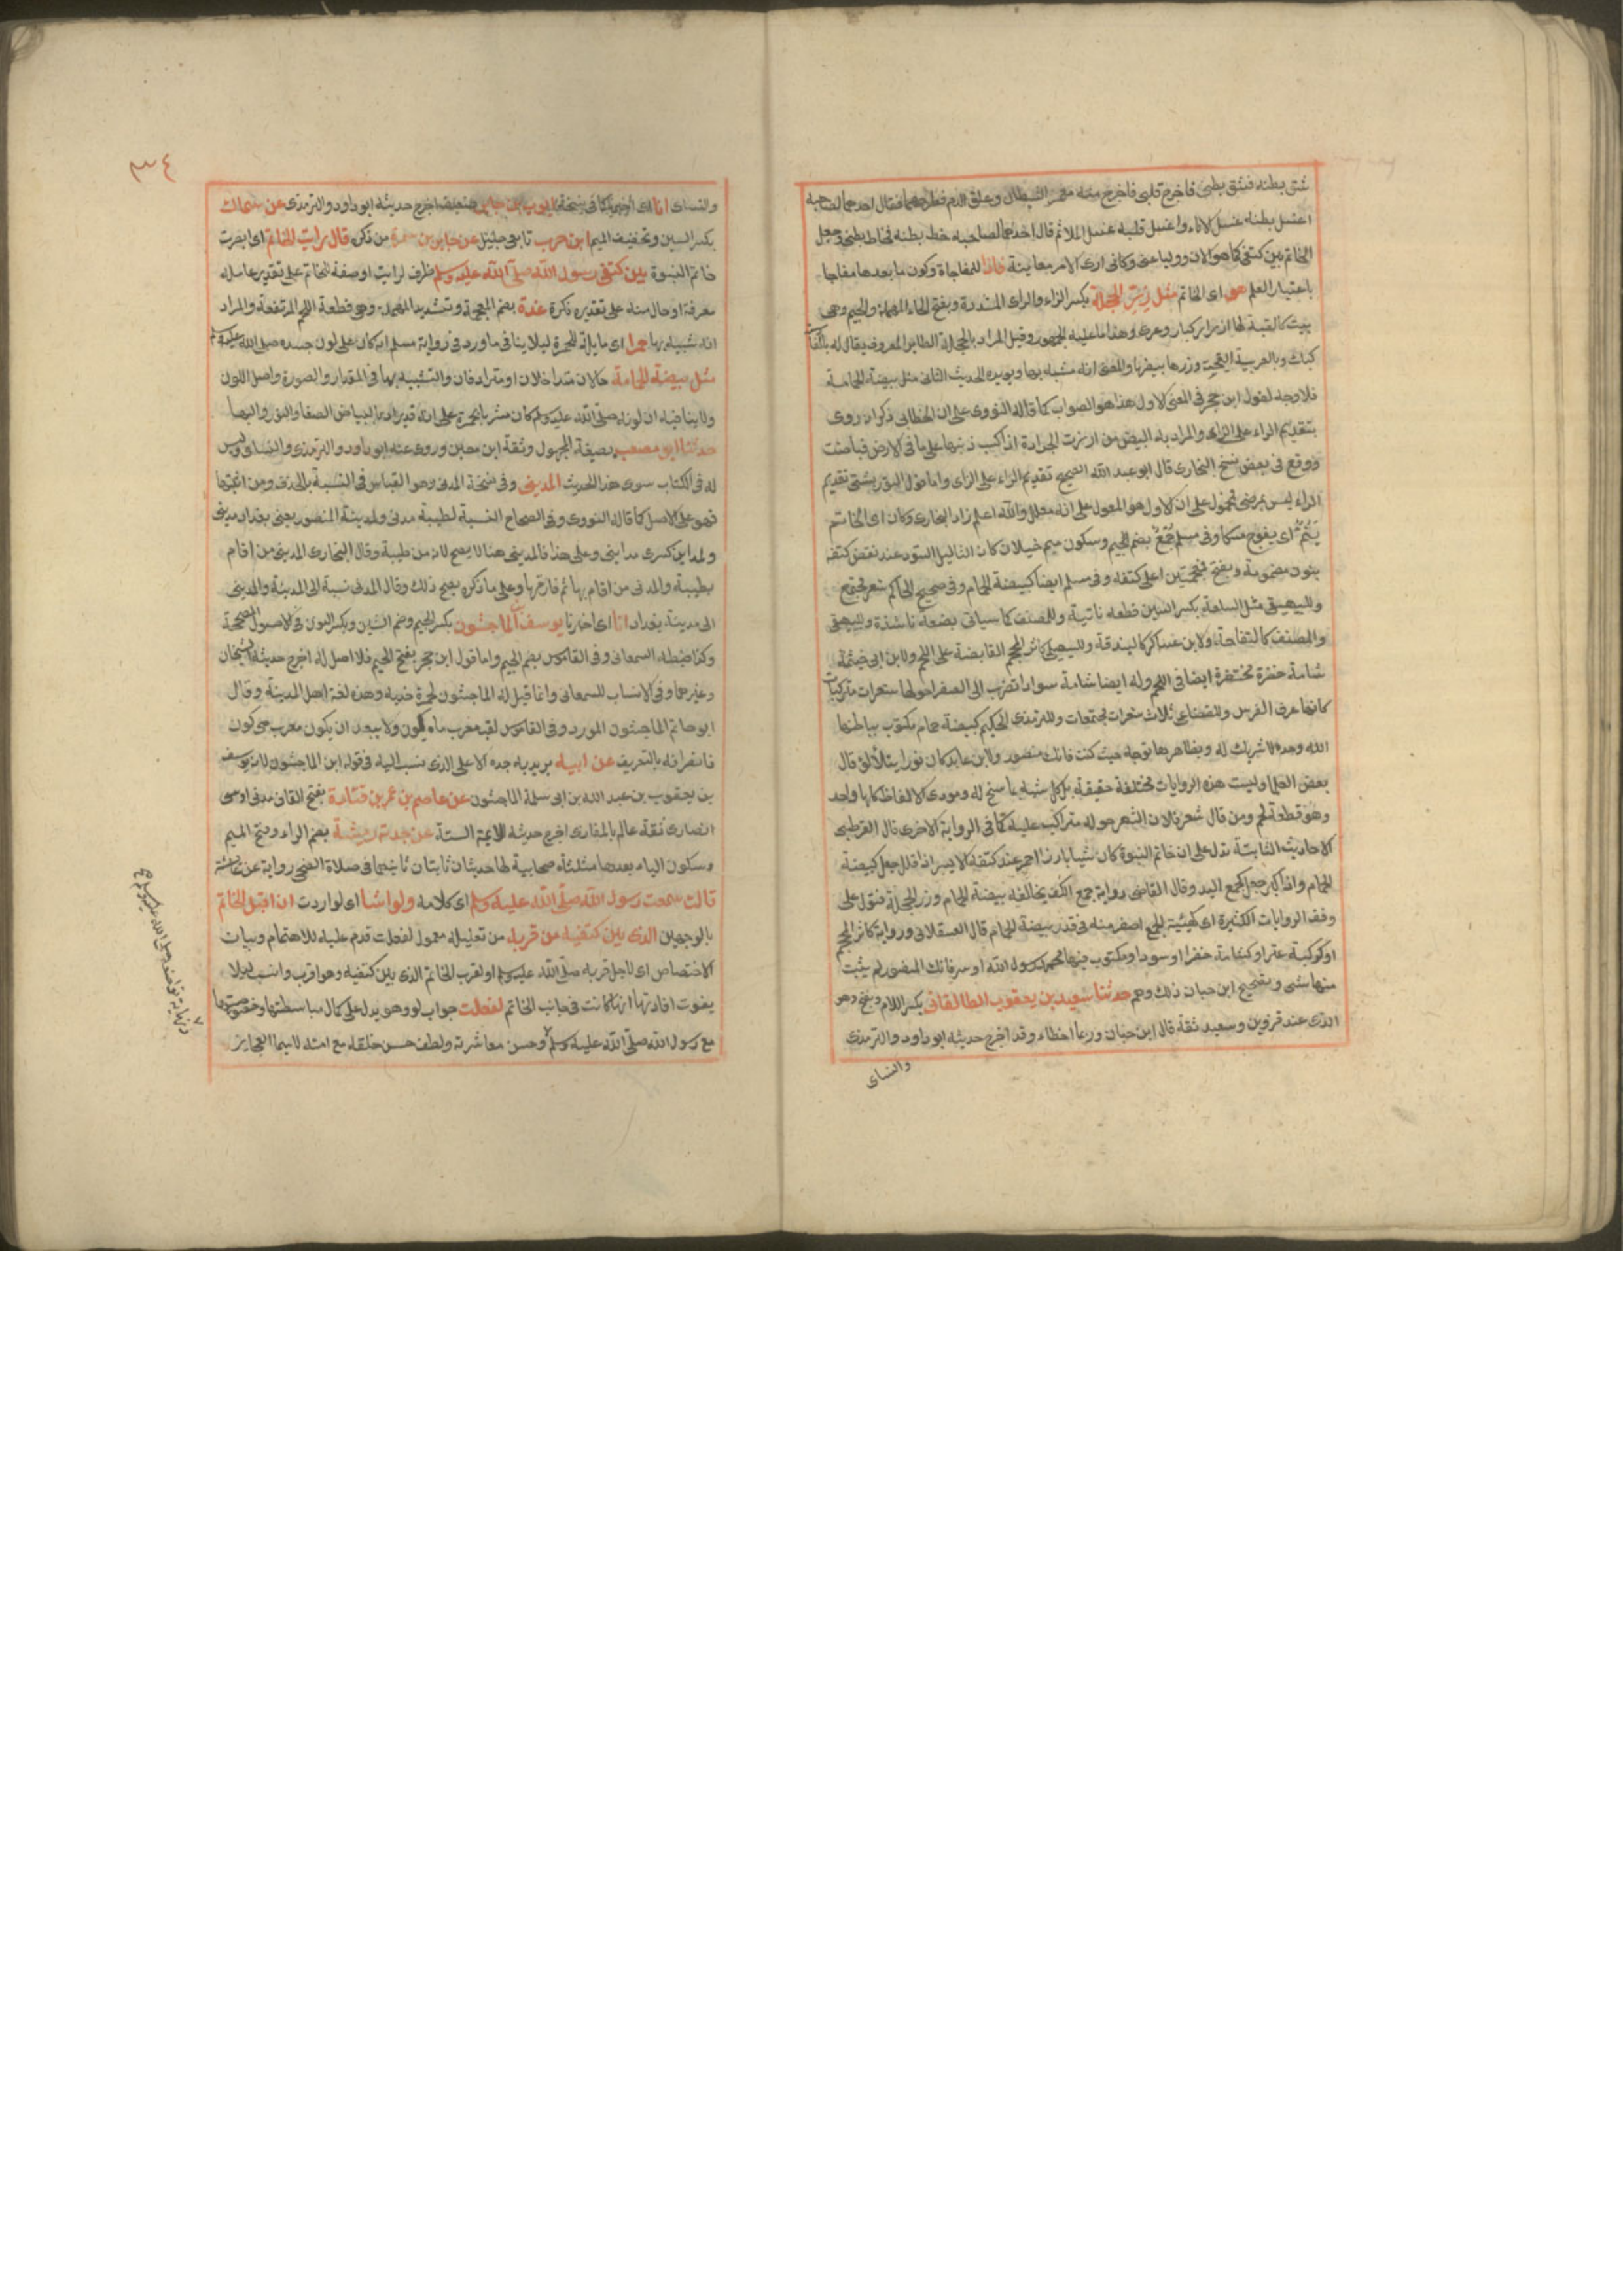 شق بطنه فشق بطنى فاخرج قلبى فاخرج منه مغمز الشيطان وعلق الدم فطرحهما فقال احدهما لصاحبه
اغسل بطنه غسل الاناء واغسل قلبه غسل الملا ثم قال احدهما لصاحبه خط بطنه فخاط بطنى وجعل
الخاتم بين كتفى كما هو الان ووليا عنى وكانى ارى الامر معاينة فاذا للمفاجاة وكون ما بعدها مفاجا
باعتبار العلم هو اى الخاتم مثل زر الحجلة بكسر الزاء والراى المشددة وبفتح الحاء المهملة والجيم وهى
بيت كالقبة لها ازرار كبار وعرى وهذا ما عليه الجمهور وقيل المراد بالحجلة الطاير المعروف يقال له بالفارسية
كبك وبالعربية القبجة وزرها بيضها والمعنى انه مشبه بها ويويده الحديث الثانى مثل بيضة الحمامة
فلا وجه لقول ابن حجر فى المعنى الاول هذا هو الصواب كما قاله النووى على ان الخطابى ذكر انه روى
بتقديم الراء على الزاى والمراد به البيض من ارزت الجرادة اذا كبت ذنبها على ما فى الارض فباضت
ووقع فى بعض نسخ البخارى قال ابو عبد الله الصحيح تقديم الراء على الزاى واما قول التوربشتى تقديم
الراء ليس بمرضى فمحمول على ان الاول هو المعول على انه معلل والله اعلم زاد البخارى وكان اى الخاتم
ينم اى يفوح مسكا وفى مسلم جمع بضم الجيم وسكون ميم خيلان كانه الثاليل السود عند نغض كتفه
بنون مضمومة وبفتح فمعجمتين اعلى كتفه وفى مسلم ايضا كبيضة الحمام وفى صحيح الحاكم شعر مجتمع
وللبيهقى مثل السلعة بكسر السين قطعه ناتية وللمصنف كما سياتى بضعة ناشزة وللبيهقى
والمصنف كالتفاحة ولابن عساكر كالبندقة وللسهيلى كاثر المحجم القابضة على اللحم ولابن ابى خيثمة
شامة خضرة محتفرة ايضا فى اللحم وله ايضا شامة سوداء تضرب الى الصفرا حولها شعرات متراكبات
كانها عرف الفرس وللقضاعى ثلاث شعرات مجتمعات وللترمذى الحكيم كبيضة حمام مكتوب بباطنها
الله وحده لا شريك له وبظاهرها توجه حيث كنت فانك منصور ولابن عايد كان نورا يتلالؤ قال
بعض العلما وليست هذه الروايات مختلفة حقيقة بل كل شبه بما سنح له ومودى الالفاظ كلها واحد
وهو قطعة لحم ومن قال شعر فلان الشعر حوله متراكب عليه كما فى الرواية الاخرى قال القرطبى
الاحاديث الثابتة تدل على ان خاتم النبوة كان شيا بارزا احمر عند كتفه الايسر اذا قلل جعل كبيضة
الحمام واذا كبر جعل كجمع اليد وقال القاضى رواية جمع الكف يخالفه بيضة الحمام وزر الحجلة فتؤل على
وفق الروايات الكثيرة اى كهيئة الجمع اصغر منه فى قدر بيضة الحمام قال العسقلانى ورواية كاثر المحجم
او كركبة عنز او كشامة خضرا او سودا ومكتوب فيها محمد رسول الله او سر فانك المنصور لم يثبت
منها شى وتصحيح ابن حبان ذلك وهم حدثنا سعيد بن يعقوب الطالقانى بكسر اللام وبفتح وهو
الذى عند قزوين وسعيد ثقة قال ابن حبان وربما اخطاء وقد اخرج حديثه ابو داود والترمذى
والنساى
٣٤
والنساى انا اى اخبرنا كما فى نسخة ايوب بن جابر ضعيف اخرج حديثه ابو داود والترمذى عن سماك
بكسر السين وتخفيف الميم ابن حرب تابعى جليل عن جابر بن سمرة من ذكره قال رايت الخاتم اى ابصرت
خاتم النبوة بين كتفى رسول الله صلى الله عليه وسلم ظرف لرايت او صفة للخاتم على تقدير عامله
معرفة او حال منه على تقديره نكرة غدة بضم المعجمة وتشديد المهملة وهى قطعة اللحم المرتفعة والمراد
انه شبيه بها حمرا اى مايلة للحمرة ليلا ينافى ما ورد فى رواية مسلم انه كان على لون جسده صلى الله عليه وسلم
مثل بيضة الحمامة حالان متداخلان او مترادفان والتشبيه بها فى المقدار والصورة واصل اللون
ولا ينافيه ان لونه صلى الله عليه وسلم كان مشربا بحمرة على انه قد يراد بالبياض الصفا والنور والبها
حدثنا ابو مصعب بصيغة المجهول وثقة ابن معين وروى عنه ابو داود والترمذى والنساى وليس
له فى الكتاب سوى هذا الحديث المدينى وفى نسخة المدنى وهو القياس فى النسبة بالحذف ومن اثبتها
فهو على الاصل كما قاله النووى وفى الصحاح النسبة لطيبة مدنى ولمدينة المنصور يعنى بغداد مدينى
ولمداين كسرى مداينى وعلى هذا فالمدينى هنا لا يصح لانه من طيبة وقال البخارى المدينى من اقام
بطيبة والمدنى من اقام بها ثم فارقها وعلى ما ذكره يصح ذلك وقال المدنى نسبة الى المدينة والمدينى
الى مدينة بغداد انا اى اخبرنا يوسف بن الماجشون بكسر الجيم وضم الشين وبكسر النون فى الاصول المصححة
وكذا ضبطه السمعانى وفى القاموس بضم الجيم واما قول ابن حجر بفتح الجيم فلا اصل له اخرج حديثه الشيخان
وغيرهما وفى الانساب للسمعانى وانما قيل له الماجشون لحمرة خديه وهذه لغة اهل المدينة وقال
ابو حاتم الماجشون المورد وفى القاموس لقب معرب ماه كون ولا يبعد ان يكون معرب مى كون
فانصرافه بالتعريف عن ابيه يريد به جده الاعلى الذى ينسب اليه فى قوله ابن الماجشون لانه يوسف
بن يعقوب بن عبد الله بن ابى سلمة الماجشون عن عاصم بن عمر بن قتادة بفتح القاف مدنى اوسى
انصارى ثقة عالم بالمغازى اخرج حديثه الايمة الستة عن جدته رميثة بضم الراء وفتح الميم
وسكون الياء بعدها مثلثة صحابية لها حديثان ثابتان ثانيهما فى صلاة الضحى رواية عن عائشة
قالت سمعت رسول الله صلى الله عليه وسلم اى كلامه ولو اشا اى لو اردت ان اقبل الخاتم
بالوجهين الذى بين كتفيه من قربه من تعليلة معمول لفعلت قدم عليه للاهتمام وبيان
الاختصاص اى لاجل قربه صلى الله عليه وسلم او لقرب الخاتم الذى بين كتفيه وهو اقرب وانسب ليلا
يفوت افادتها انها كانت فى جانب الخاتم لفعلت جواب لو وهو يدل على كمال مباسطتها وخصوصيتها
مع رسول الله صلى الله عليه وسلم وحسن معاشرته ولطف حسن خلقه مع امته لا سيما العجايز
ونهاية تواضعه صلى الله عليه وسلم